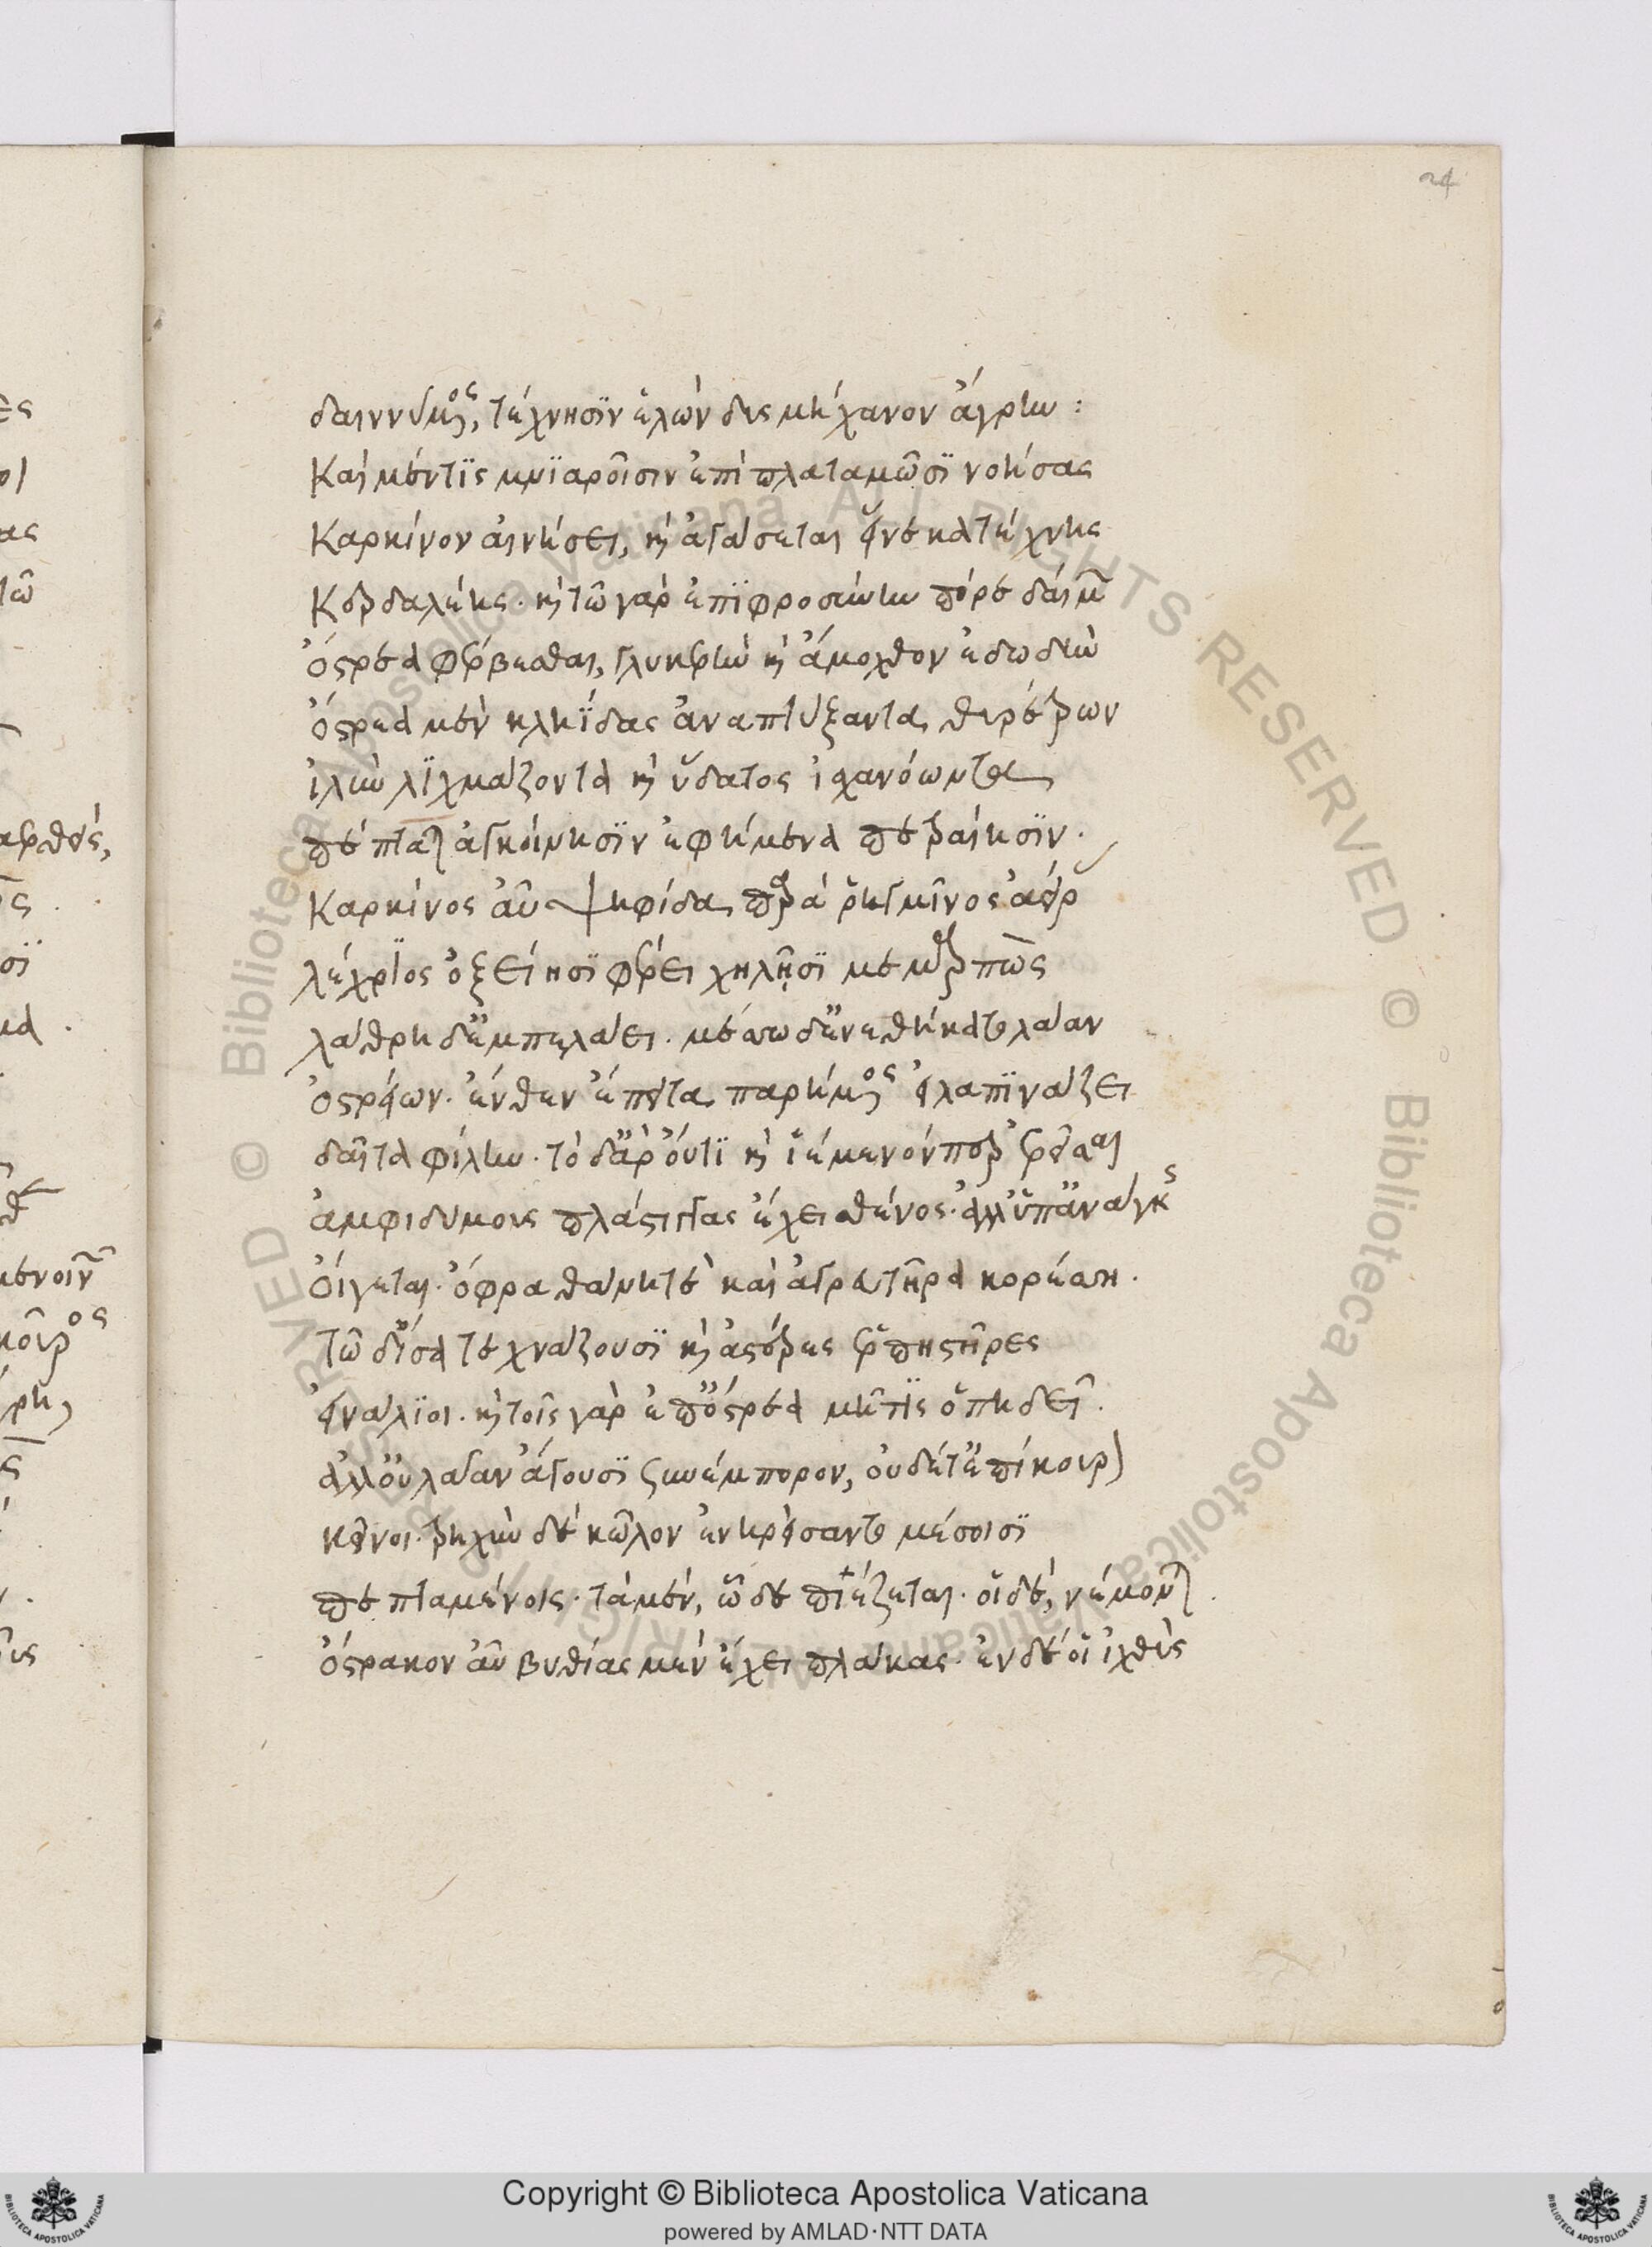 24
δαιννύμενος, τέχνησϊν ἑλὼν δυσμήχανον ἄγρην :
Καὶ μέν τϊς μνϊαροῖσιν ἐπὶ πλαταμῶσϊ νοήσας
Καρκίνον αἰνήσει, καὶ ἀγάσσεται εἵνεκα τέχνης
Κερδαλέης. καὶ τῷ γὰρ ἐπϊφροσύνην πόρε δαίμων
ὄστρεα φέρβεσθαι, γλυκερὴν καὶ ἄμοχθον ἐδωδὴν
ὄστρεα μὲν κληῗδας ἀναπτύξαντα θυρέτρων
ἰλὺν λϊχμάζοντα καὶ ὕδατος ἰσχανόωντα
πέπταται ἀγκοίνησϊν ἐφήμενα πετραίησϊν.
Καρκίνος αὖ ψηφίδα παρὰ ῥηγμῖνος ἀείρας
λέχρϊος ὀξείησϊ φέρει χηλῇσϊ μεμαρπώς
λάθρη δ' ἐμπελάει. μέσσω δ' ἐνεθήκατο λάαν
ὀστρείων. ἔνθεν ἔπειτα παρήμενος εἰλαπϊνάζει
δαῖτα φίλην. τὸ δ' ἄρ' οὔτϊ καὶ ἱέμενόν περ ἐρεῖσαι
ἀμφιδύμοις πλάστιγγας ἔχει σθένος. ἀλλ' ὑπ' ἀνάγκης
οἴγεται. ὄφρα θάνη τὲ καὶ ἀγρευτῆρα κορέσση.
τῷ δ' ἴσα τεχνάζουσϊ καὶ ἀστέρες ἑρπηστῆρες
εἰνάλϊοι. καὶ τοῖς γὰρ ἐπ' ὄστρεα μῆτϊς ὀπηδεῖ.
ἀλλ' οὐ λάαν ἄγουσϊ ξυνέμπορον, οὐδέ τ' ἐπίκουρον
κεῖνοι. τρηχὺν δὲ κῶλον ἐνηρείσαντο μέσοισϊ
πεπταμένοις. τὰ μὲν, ὧδε πιέζεται. οἱ δὲ, νέμονται.
ὄστρακον αὖ βυθίας μὲν ἔχει πλάκας. ἐν δέ οἱ ἰχθὺς